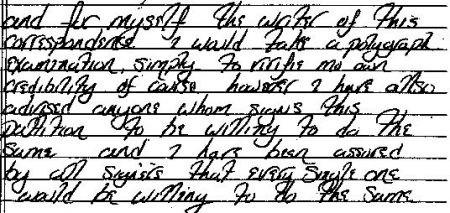 and for myself the writer of this
correspondence I would take a polygraph
examination, simply to virifie mo own
credibility of cause however I have allso
advised anyone whom signs this
patition to be willing to do the
same and I have been assured
by all signies that every single one
would be willing to do the same